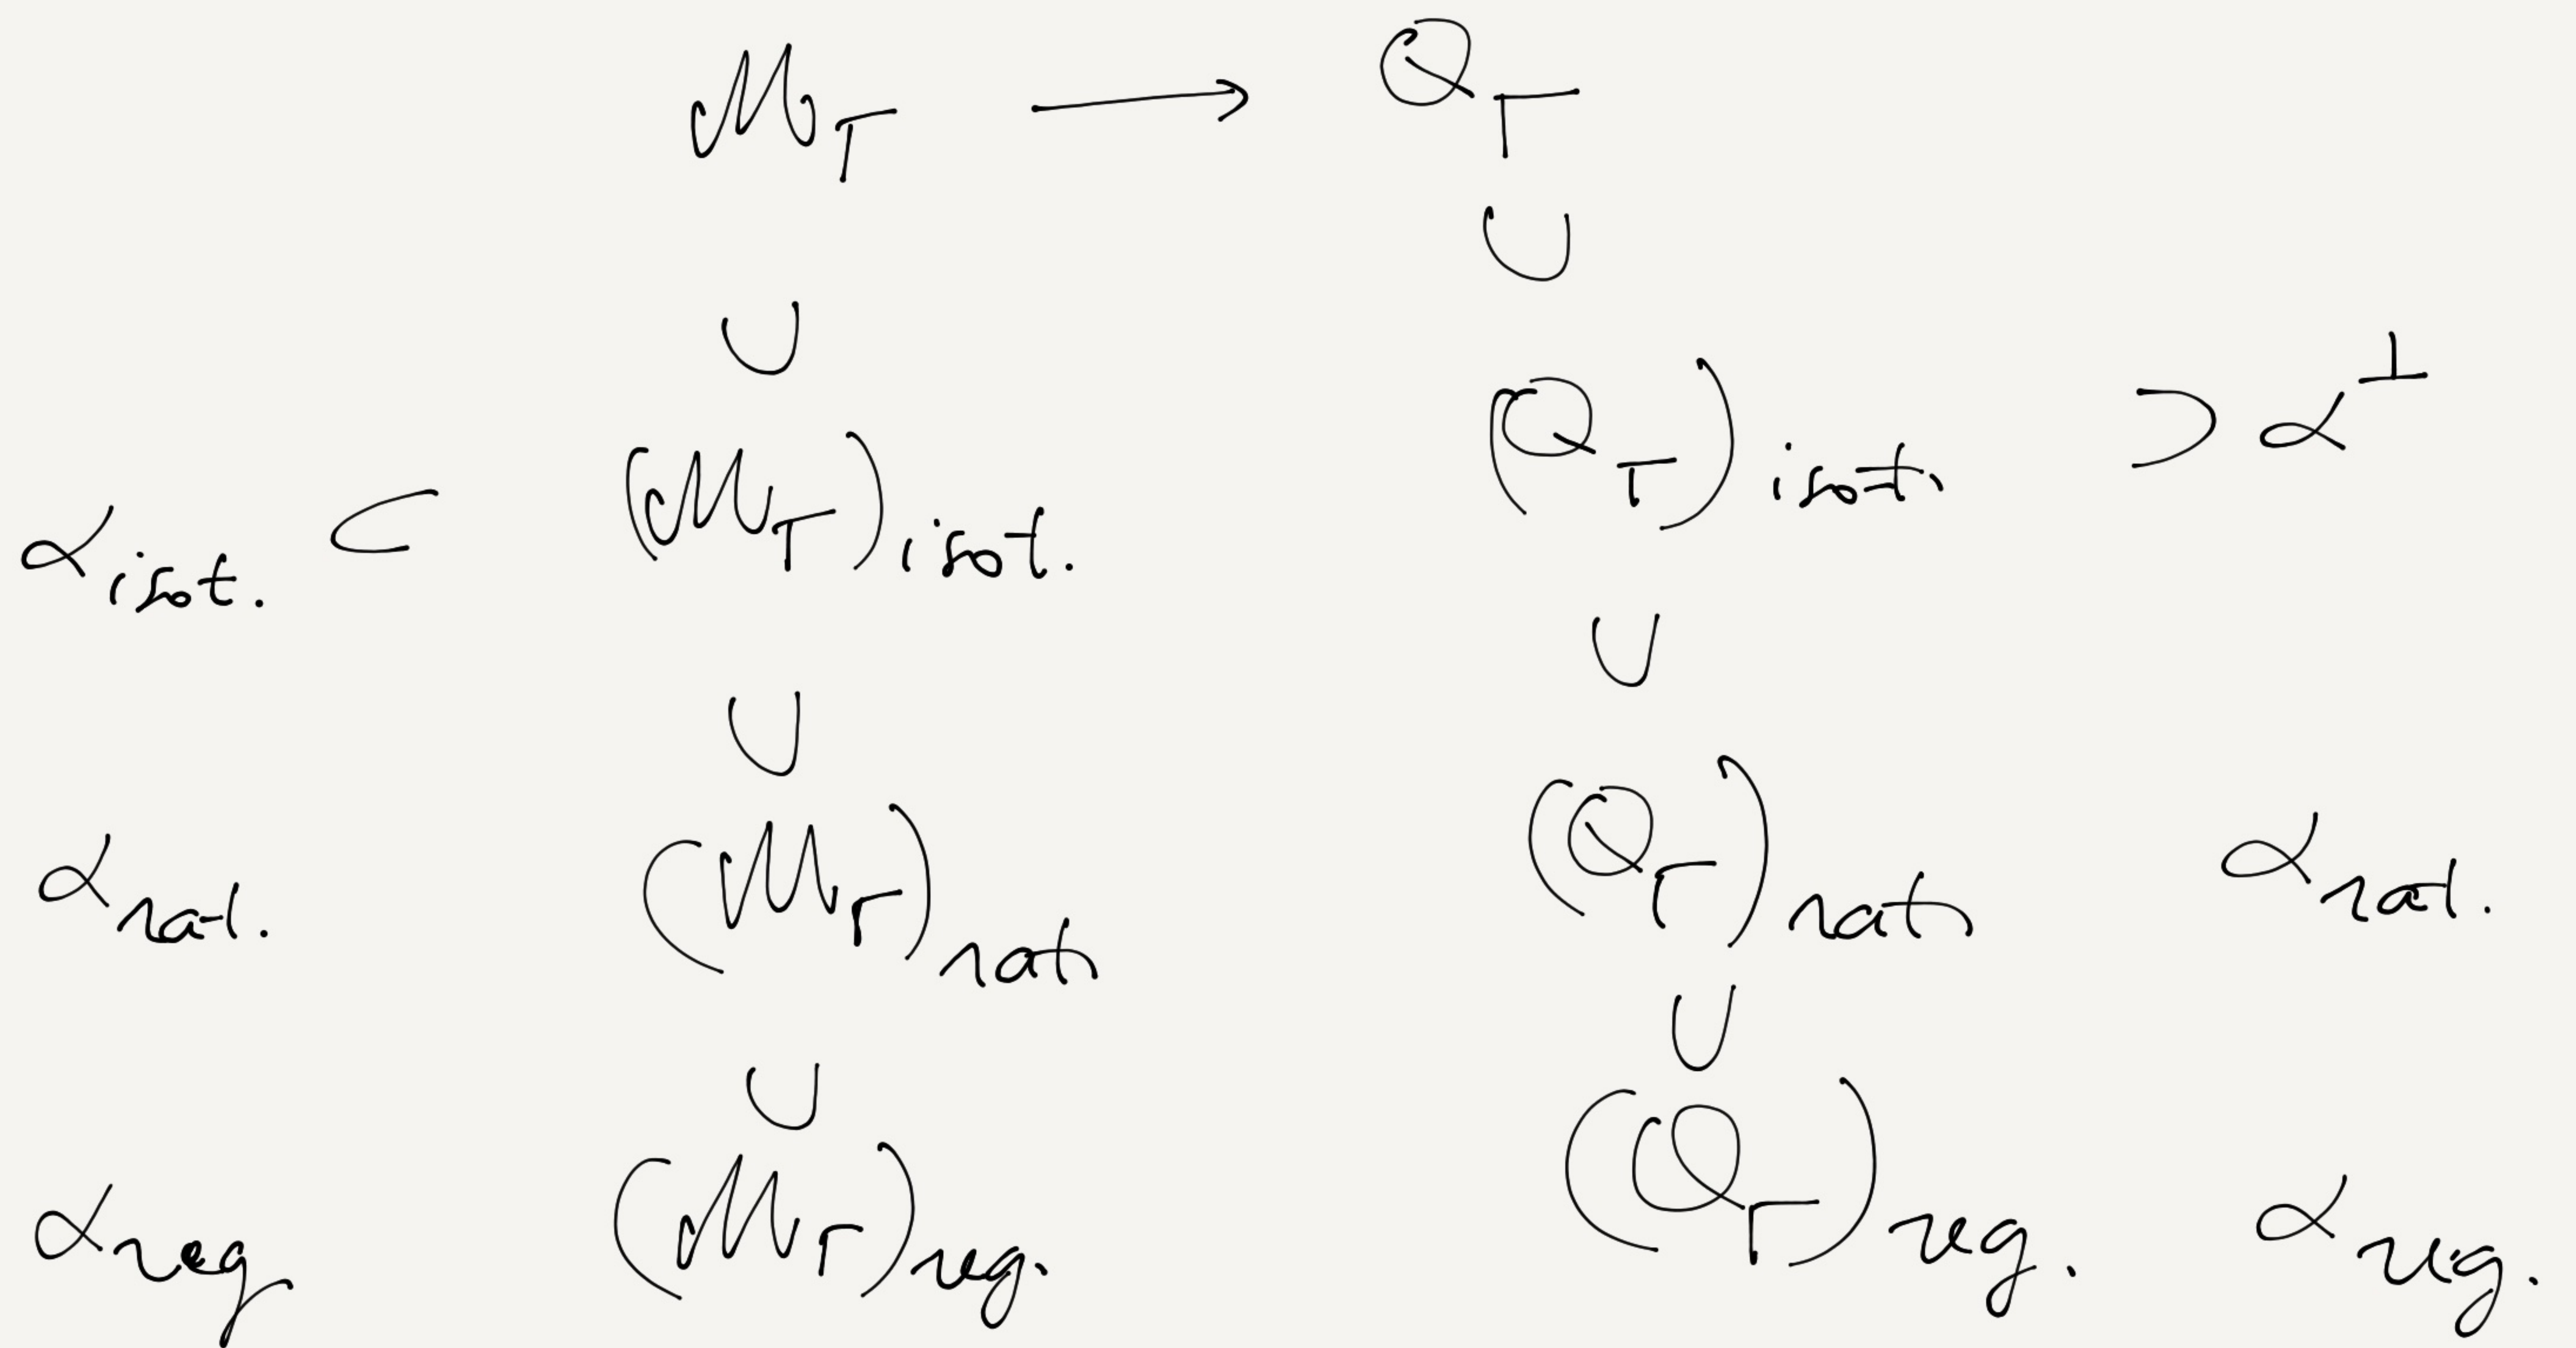 ℳ_T ⟶ Q_T
∪ ∪
α_isot. ⊂ (ℳ_T)_isot. (Q_T)_isot. ⊃ α^⊥
∪ ∪
α_nat. (ℳ_T)_nat. (Q_T)_nat. α_nat.
∪ ∪
α_reg. (ℳ_T)_reg. (Q_T)_reg. α_reg.